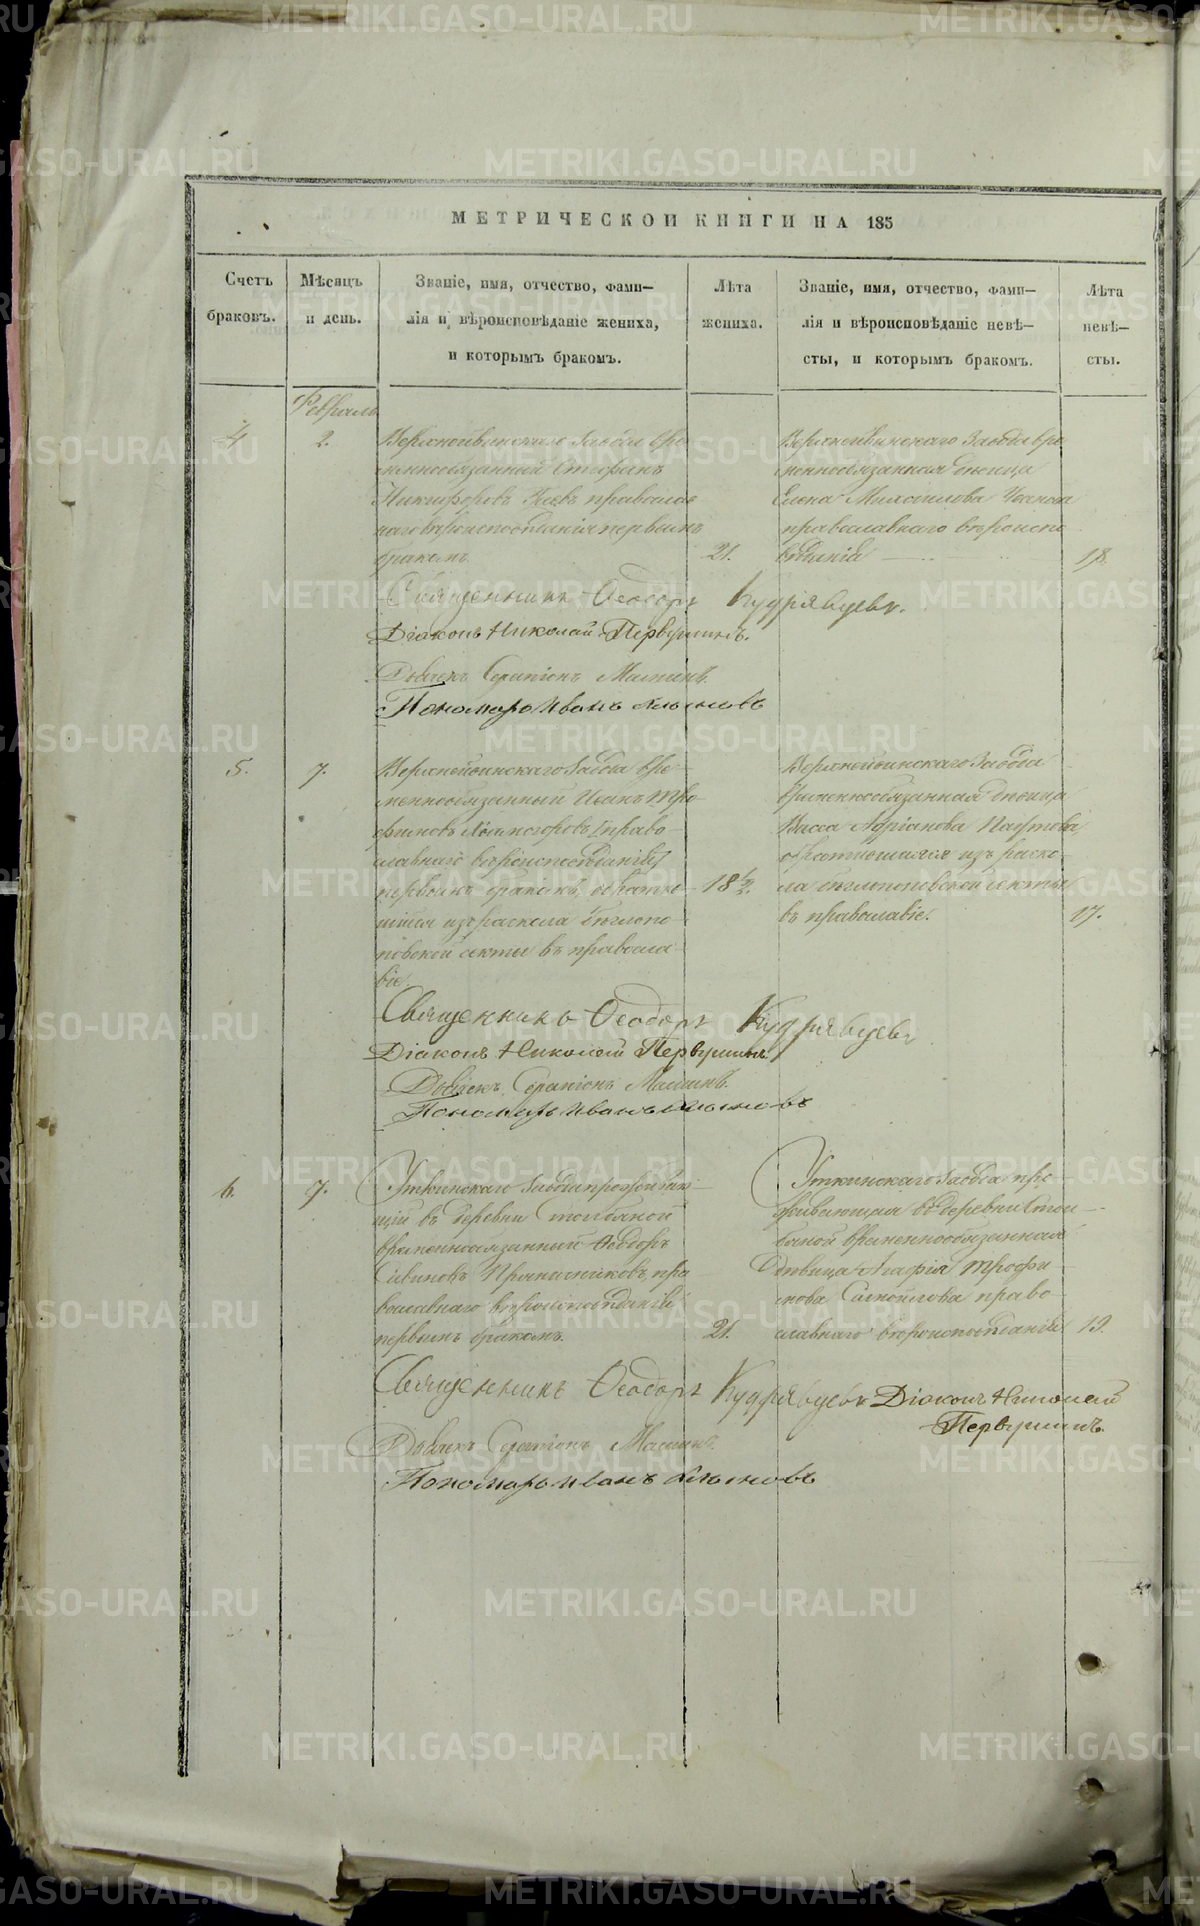 МЕТРИЧЕСКОЙ КНИГИ НА 185
Счетъ браковъ.
Мѣсяцъ и день.
Званіе, имя, отчество, фами—
лія и вѣроисповѣданіе жениха,
и которымъ бракомъ.
Лѣта жениха.
Званіе, имя, отчество, фами—
лія и вѣроисповѣданіе невѣ—
сты, и которымъ бракомъ.
Лѣта невѣ—
сты.
Февраль
4
2.
Верхнейвинскаго Завода вре
меннообязанный Стефанъ
Никифоровъ православ
наго вѣроисповѣданія первымъ
бракомъ.
21.
Верхнейвинскаго Завода вре
меннообязанная дѣвица
Елена Михаилова
православнаго вѣроиспо
вѣданія
18.
Священникъ Ѳеодоръ Кудрявцевъ.
Діаконъ Николай Первушинъ.
Дьячекъ Серапіонъ
Пономарь Иванъ
5.
7.
Верхнейвинскаго Завода вре
меннообязанный Иванъ Тро
фимовъ право
славнаго вѣроисповѣданія
первымъ бракомъ, обратив
шійся изъ раскола бѣглопо
повской секты въ правосла
віе.
18 ½.
Верхнейвинскаго Завода
временнообязанная дѣвица
Васса Адріанова
обратившаяся изъ раско
ла бѣглопоповской секты
въ православіе.
17.
Священникъ Ѳеодоръ Кудрявцевъ
Діаконъ Николай Первушинъ
Дьячекъ Серапіонъ
Пономарь Иванъ
6.
7.
Уткинскаго Завода проживаю
щій въ деревни
временнообязанный Ѳеодоръ
Савиновъ Пряничниковъ, пра
вославнаго вѣроисповѣданія
первымъ бракомъ.
21.
Уткинскаго Завода про
живающая въ деревни
временнообязанная
дѣвица Агафія Трофи
мова Самойлова право
славнаго вѣроисповѣданія
19.
Священникъ Ѳеодоръ Кудрявцевъ Діаконъ Николай
Первушинъ.
Дьячекъ Серапіонъ
Пономарь Иванъ
METRIKI.GASO-URAL.RU